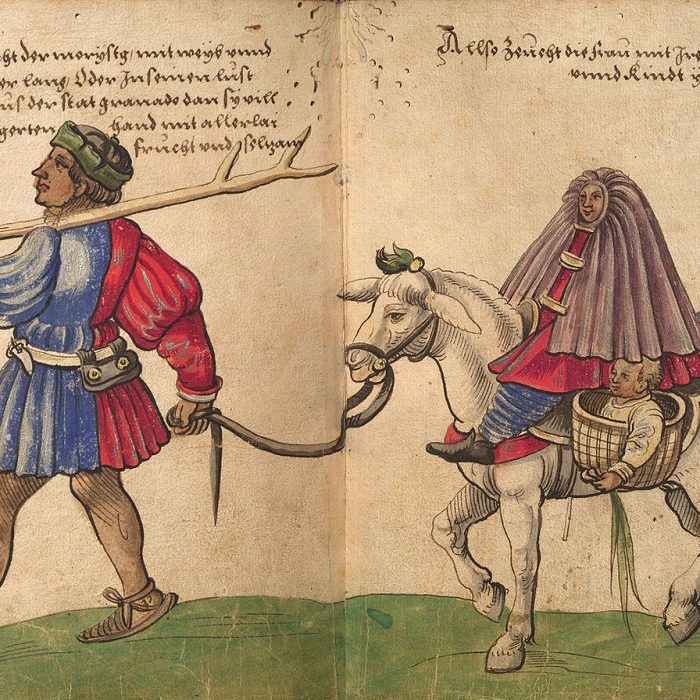 cht der moryskg, mit weyb vnnd
er lang, Oder Inseinen lust
us der stat granado dan sy vill
gerten hand mit allerlai
frucht vnd selzam
Allso Zeucht die frau mit Ire
vnnd Kindt y